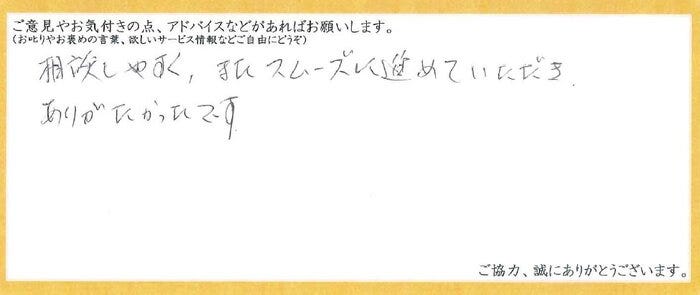 ご意見やお気付きの点、アドバイスなどがあればお願いします。
(お叱りやお褒めの言葉、欲しいサービス情報などご自由にどうぞ)
相談しやすく,またスムーズに進めていただき
ありがたかったです
ご協力、誠にありがとうございます。